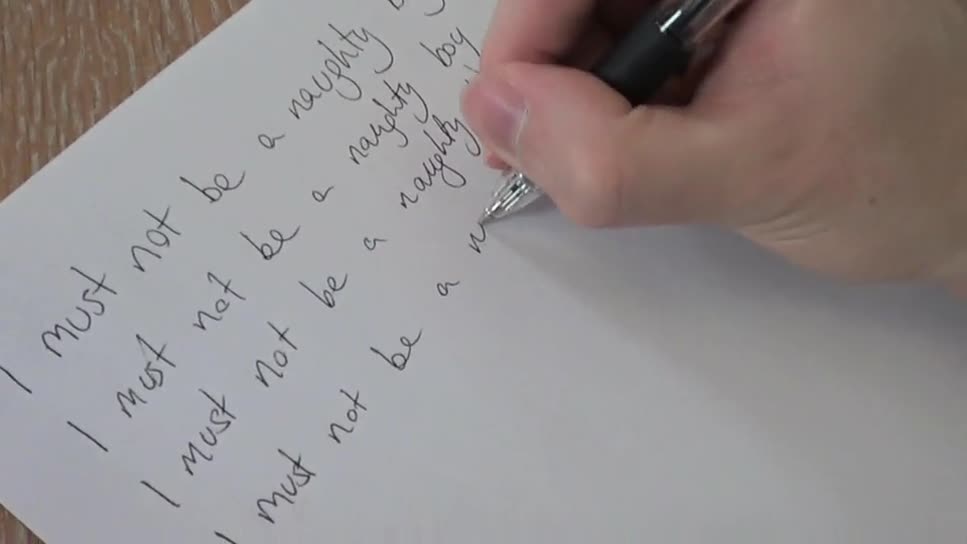 I must not be a naughty
I must not be a naughty boy
I must not be a naughty
I must not be a n